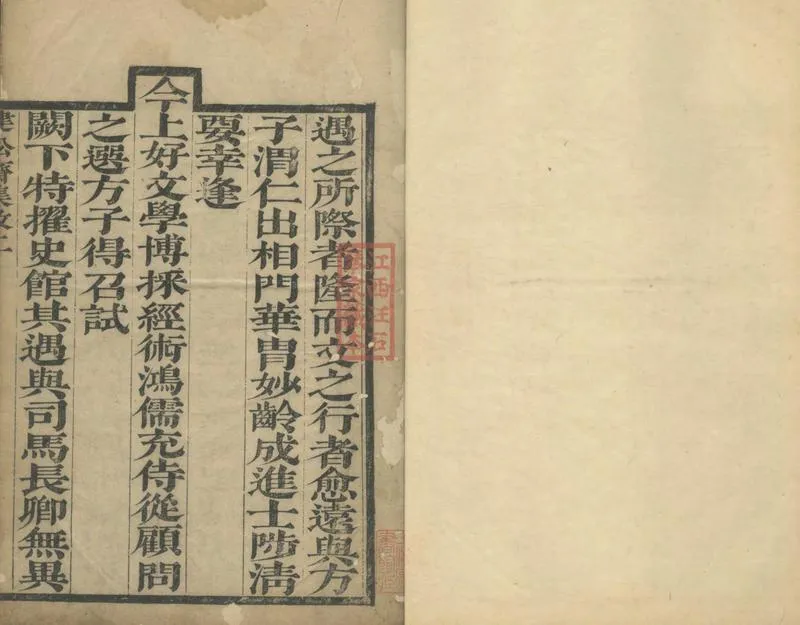 遇之所際者隆而文之行者愈遠與方
子渭仁出相門華胄妙齡成進士陟清
要幸逢
今上好文學博採經術鴻儒充侍從顧問
之選方子得召試
闕下特擢史館其遇與司馬長卿無異
健松齋集敘二